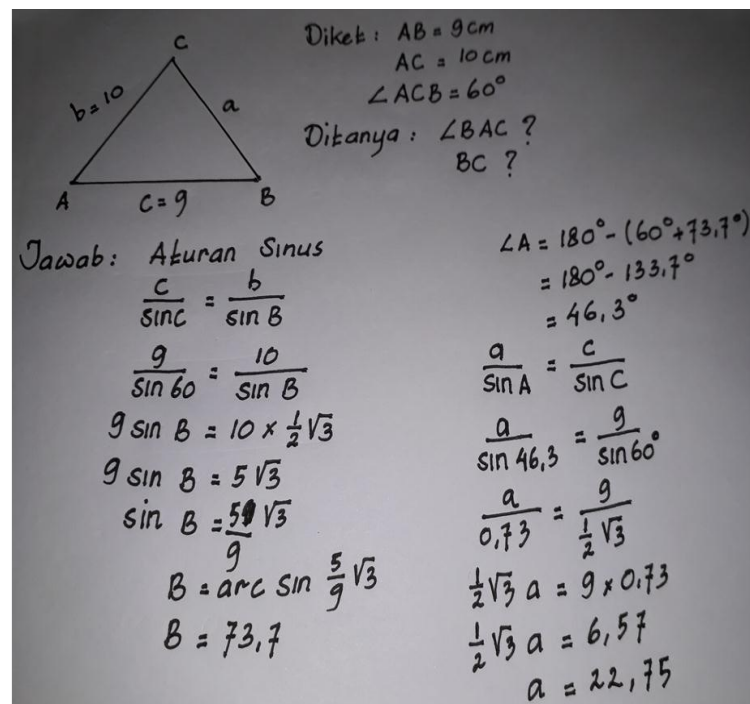 C
b = 10
a
A
B
C = 9
Diket : AB = 9 cm
AC = 10 cm
∠ACB = 60°
Ditanya : ∠BAC ?
BC ?
Jawab : Aturan Sinus
c/sin C = b/sin B
9/sin 60 = 10/sin B
9 sin B = 10 × 1/2 √3
9 sin B = 5 √3
sin B = 5 √3/9
B = arc sin 5/9 √3
B = 73,7
∠A = 180° - (60° + 73,7°)
= 180° - 133,7°
= 46,3°
a/sin A = c/sin C
a/sin 46,3 = 9/sin 60°
a/0,73 = 9/1/2 √3
1/2 √3 a = 9 × 0,73
1/2 √3 a = 6,57
a = 22,75